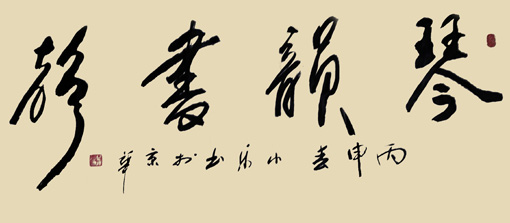 琴韻書聲
丙申春小乐书於京華